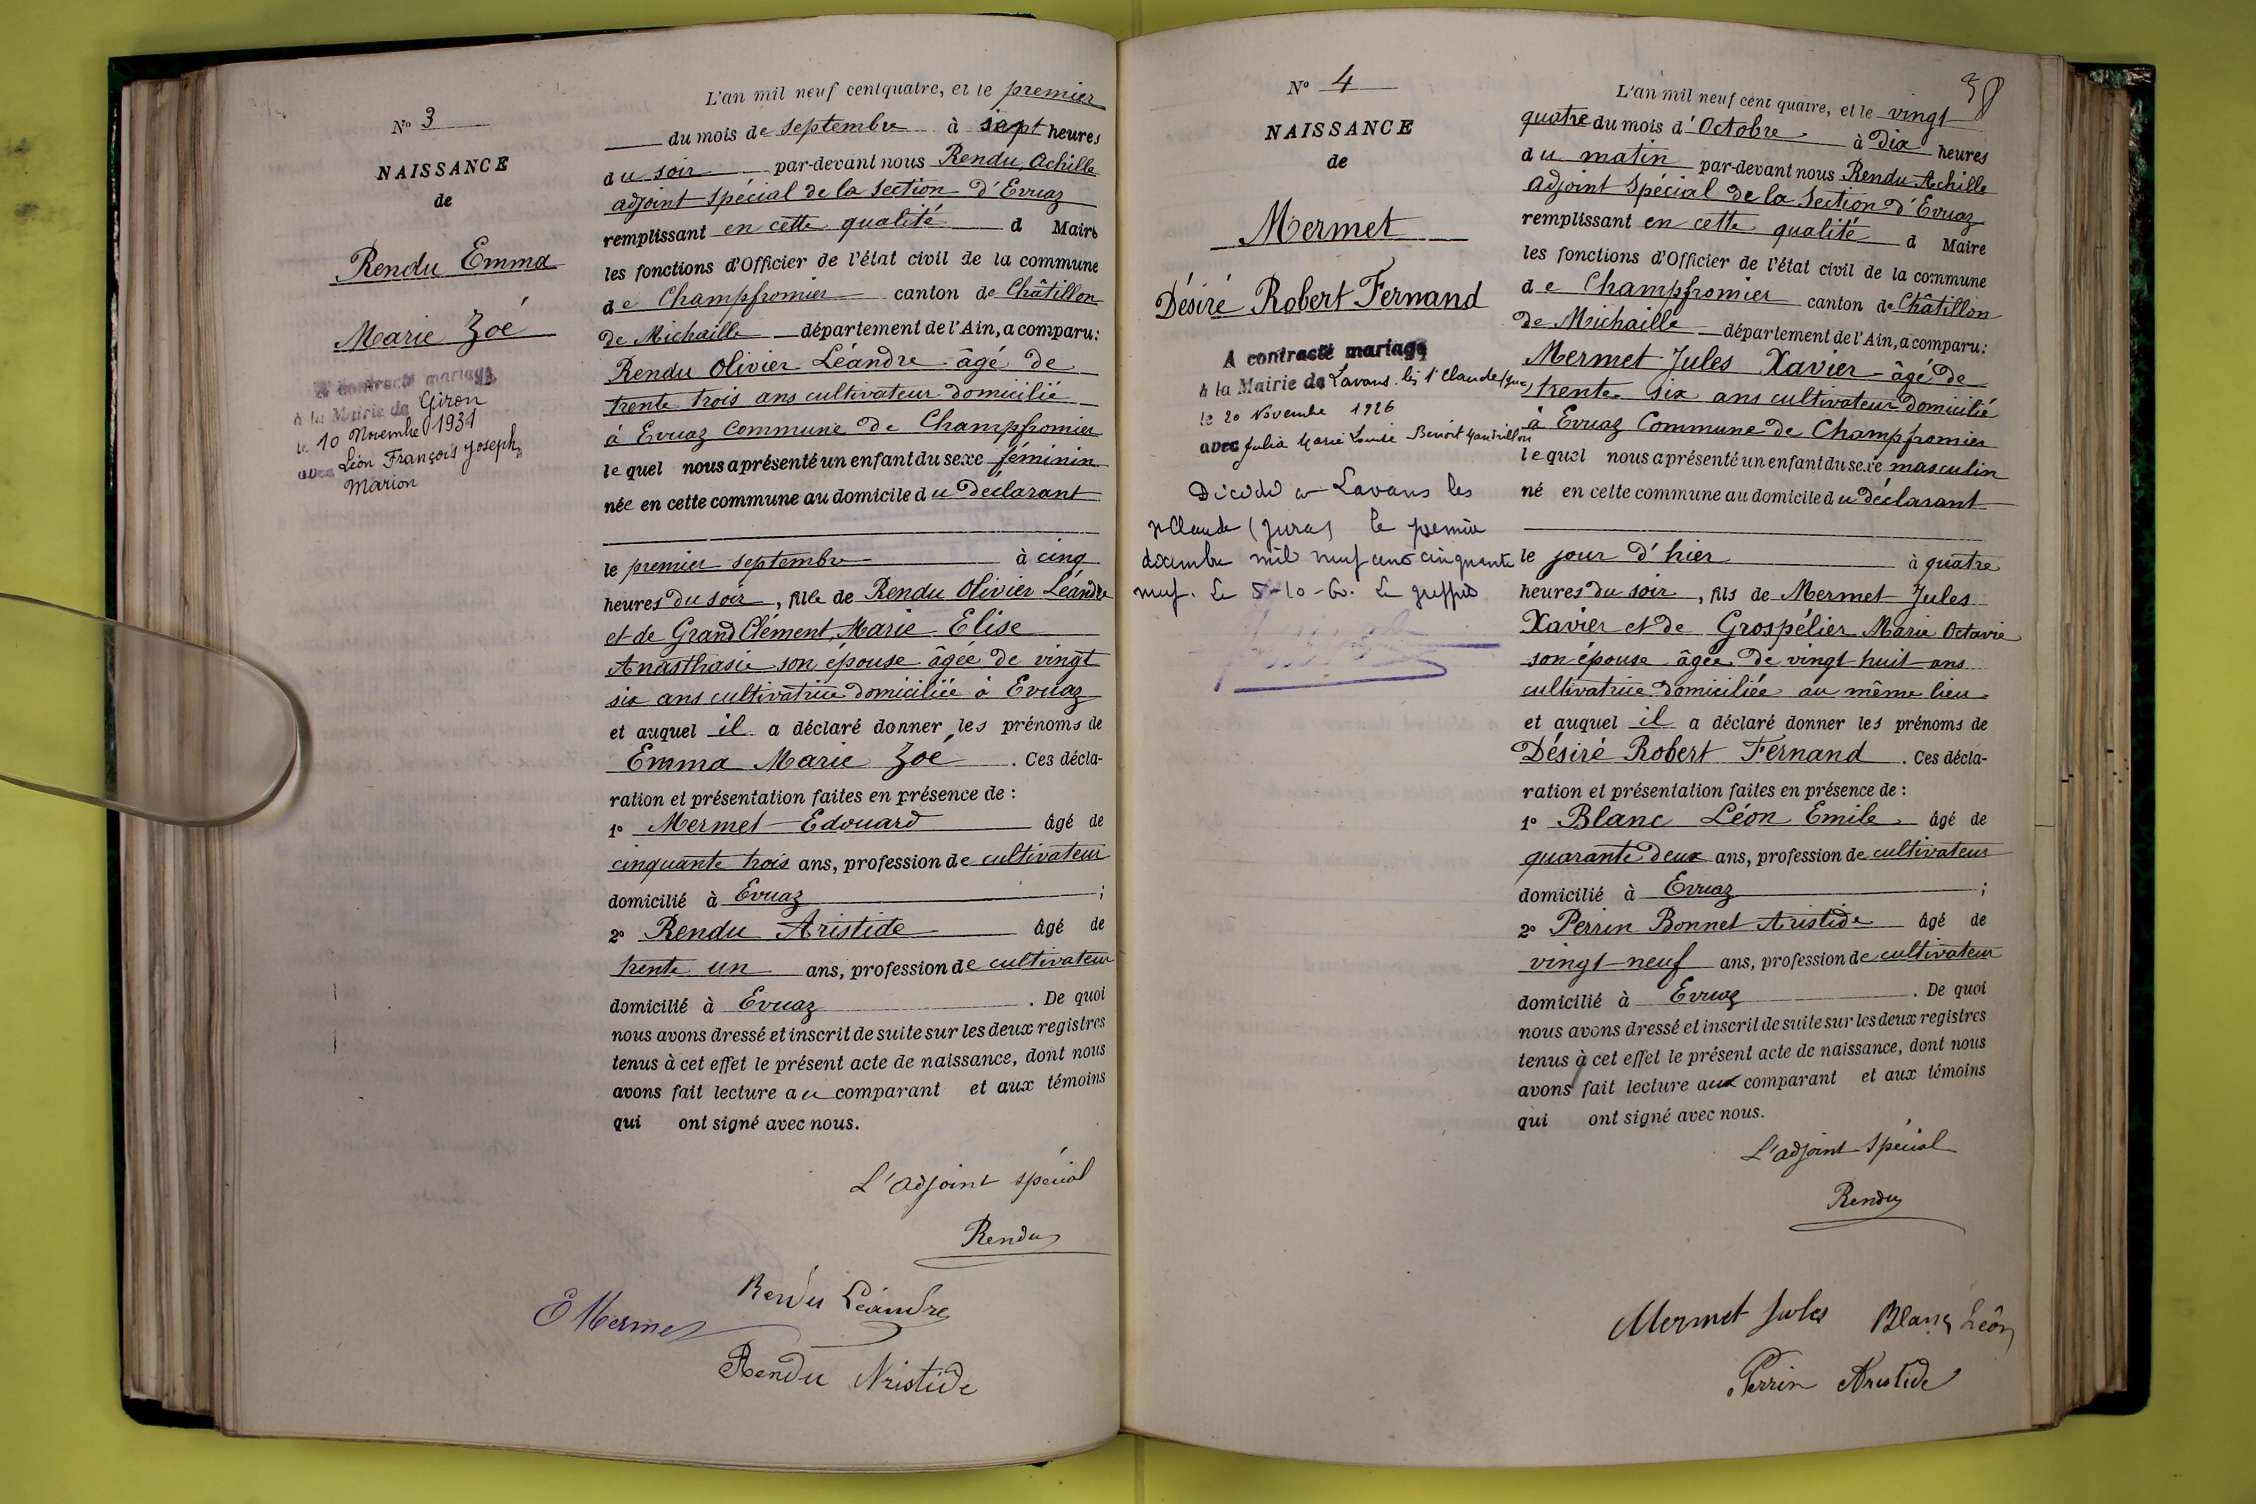 N° 3
NAISSANCE
de
Rendu Emma
Marie Zoé
A contracté mariage
à la Mairie de Giron
le 10 Novembre 1931
avec Léon François Joseph
Marion
L'an mil neuf cent quatre, et le premier
du mois de septembre à sept heures
du soir par-devant nous Rendu, Achille
adjoint spécial de la section d'Evuaz
remplissant en cette qualité d Maire
les fonctions d'Officier de l'état civil de la commune
de Champfromier canton de Châtillon
de Michaille département de l'Ain, a comparu:
Rendu Olivier Léandre âgé de
trente trois ans cultivateur domicilié
à Evuaz Commune de Champfromier
lequel nous a présenté un enfant du sexe féminin
née en cette commune au domicile du declarant
le premier septembre à cinq
heures du soir, fille de Rendu Olivier Léandre
et de Grand Clément, Marie Elise
Anasthasie son épouse âgée de vingt
six ans cultivatrice domiciliée à Evuaz
et auquel il a déclaré donner les prénoms de
Emma Marie Zoé. Ces décla-
ration et présentation faites en présence de :
1° Mermet Edouard âgé de
cinquante trois ans, profession de cultivateur
domicilié à Evuaz ;
2° Rendu Aristide âgé de
trente un ans, profession de cultivateur
domicilié à Evuaz. De quoi
nous avons dressé et inscrit de suite sur les deux registres
tenus à cet effet le présent acte de naissance, dont nous
avons fait lecture au comparant et aux témoins
qui ont signé avec nous.
L'adjoint spécial
Rendu
Rendu Léandre
E Mermet
Rendu Aristide
38
N° 4
NAISSANCE
de
Mermet
Désiré Robert Fernand
A contracté mariage
à la Mairie de Lavans les St Claude (Jura)
le 20 Novembre 1926
avec Julia Marie Louise Benoit
Décédé à Lavans les
St Claude (Jura) le premier
décembre mil neuf cent cinquante
neuf. Le 5-10-60. Le greffier
L'an mil neuf cent quatre, et le vingt
quatre du mois d'Octobre à Dix heures
du matin par-devant nous Rendu Achille
adjoint Spécial de la Section d'Evuaz
remplissant en cette qualité d Maire
les fonctions d'Officier de l'état civil de la commune
de Champfromier canton de Châtillon
de Michaille département de l'Ain, a comparu:
Mermet Jules Xavier âgé de
trente six ans cultivateur domicilié
à Evuaz Commune de Champfromier
lequel nous a présenté un enfant du sexe masculin
né en cette commune au domicile du déclarant
le jour d'hier à quatre
heures du soir, fils de Mermet Jules
Xavier et de Grospélier Marie Octavie
son épouse âgée de vingt huit ans
cultivatrice domiciliée au même lieu
et auquel il a déclaré donner les prénoms de
Désiré Robert Fernand. Ces décla-
ration et présentation faites en présence de :
1° Blanc Léon Emile âgé de
quarante deux ans, profession de cultivateur
domicilié à Evuaz ;
2° Perrin Bonnet Aristide âgé de
vingt neuf ans, profession de cultivateur
domicilié à Evuaz. De quoi
nous avons dressé et inscrit de suite sur les deux registres
tenus à cet effet le présent acte de naissance, dont nous
avons fait lecture aux comparant et aux témoins
qui ont signé avec nous.
L'adjoint Spécial
Rendu
Mermet Jules Blanc Léon
Perrin Aristide